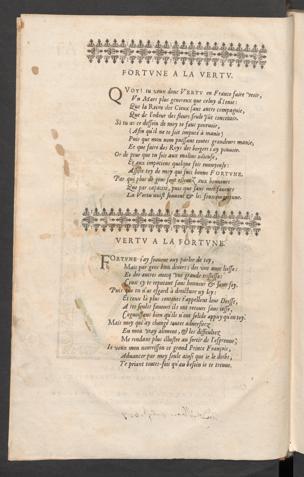 FORTVNE A LA VERTV.
QVoy! tu veux donc VERTV en France faire voir,
Vn Mars plus genereux que celuy d'Ionie:
Que la Reine des Cieux sans autre compagnie,
Que de l'odeur des fleurs seule fut concevoir.
Si tu as ce dessein de moy te faut pourvoir,
(Afin qu'il ne te soit imputé à manie)
Puis que mon nom puissant toutes grandeurs manie,
Et que faire des Roys des bergers i'ay pouuoir.
Or de peur que tu sois aux mortels odieuse,
Et aux impotens quelque fois ennuyeuse:
Assiste toy de moy qui suis bonne FORTVNE.
Par qui plus de gens sont esleuez aux honneurs
Que par capacité, puis que sans mes faueurs
La Vertu nuist souuent & les
VERTV A LA FORTVNE.
FORTVNE i'ay souuent ouy parler de toy,
Mais par gens bien diuers: des vns auec liesse:
Et des autres auecq' vne grande tristesse:
Ceux cy te reputant sans honneur & sans foy.
Puis que tu n'as esgard à droicture ny loy:
Et ceux là plus contents t'appellent leur Deesse,
A tes seules faueurs ils ont recours sans cesse,
Cognoissant bien qu'ils n'ont solide appuy qu'en toy.
Mais moy qui ay changé toutes aduersitez
En mon vray aliment, & les difficultez
Me rendant plus illustre au sortir de l'espreuue;
Ie veux mon nourrisson ce grand Prince François,
Aduancer par moy seule ainsi que ie le dois,
Te priant toutes-fois qu'au besoin il te treuue.